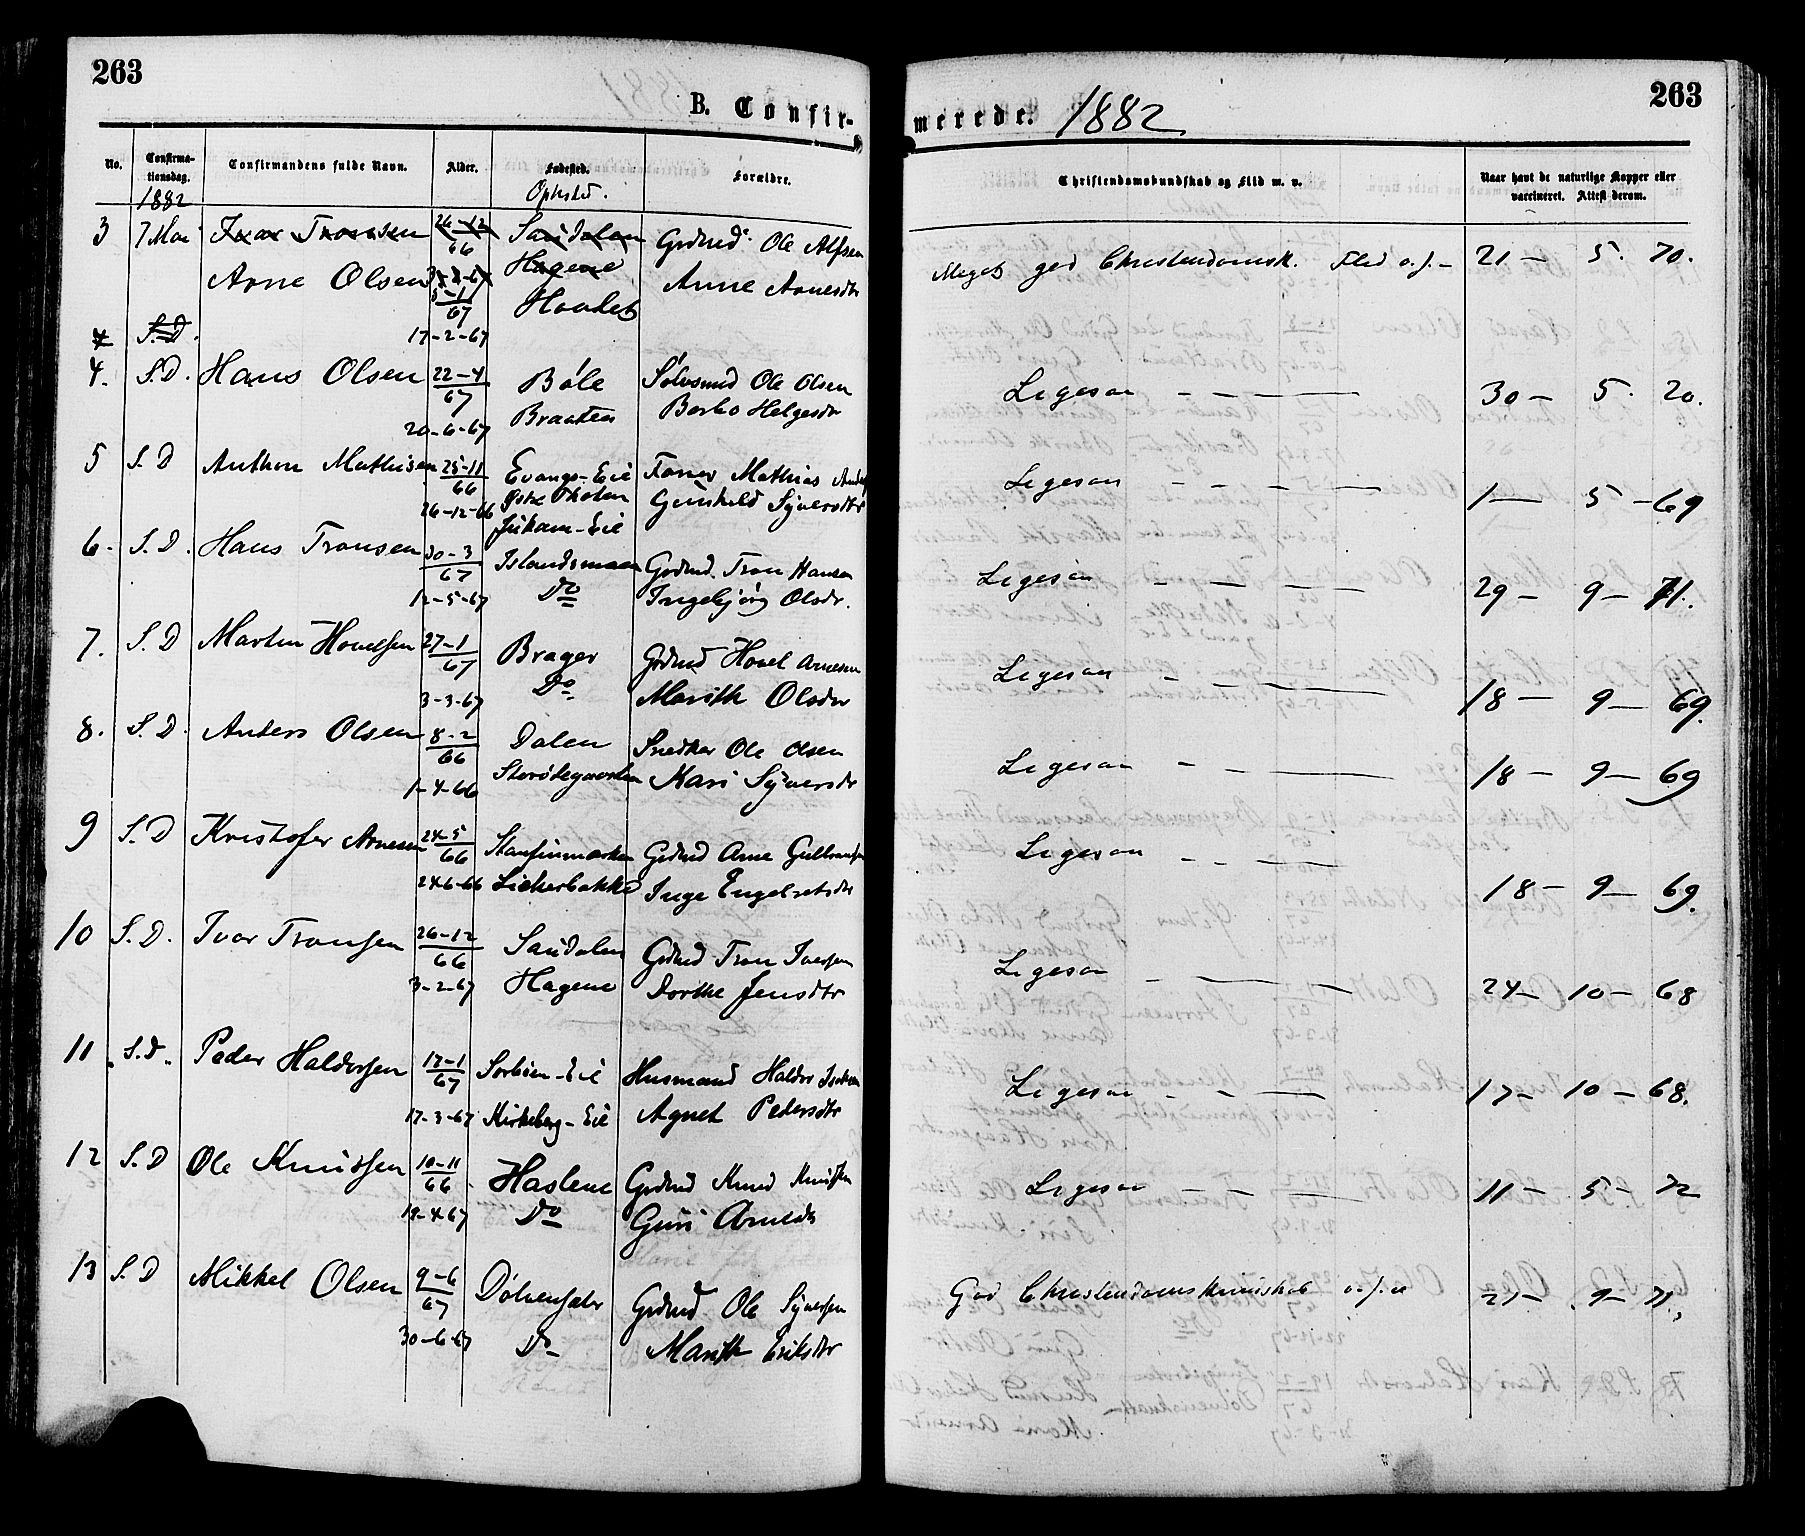 263
B. Confir-
merede.
1882
263
No.
Confirma-
tionsdag.
1882
Confirmandens fulde Navn.
Alder.
Fødested.
Opholst.
Forældre.
Christendomskundskab og Flid m. v.
Naar havt de naturlige Kopper eller
vaccineret. Attest derom.
3 7 Mai Ivar Tronsen 26-12 66 Sandalen Grdmd. Ole Alfsen Meget god Christendomsk. Flid o.s.- 21 - 5. 70.
Arne Olsen 3-2-67 Hagene Anne Arnesdtr
5-1 67 Houdet
4 S.D. 17-2-67
4. S.D. Hans Olsen 22-4 67 Bøle Sølvsmed Ole Olsen Ligesaa - - - 30 - 5. 70.
20-6-67 Braaten Berho Helgesdtr
5 S.D Anthon Mathisen 25-11 66 Evangs-Eie Mathias Ligesaa - - - 1 - 5 - 69
26-12-66 Østre Gunhild Syversdtr
6. S.D. Hans Tronsen 30-3 67 Islandsmoen Grdmd. Tron Hansen Ligesaa - - - 29 - 9 - 71.
12-5-67 Do Ingebjørg Olsdr.
7. S.D Martin Hovelsen 27-1 67 Brager Grdmd Hovel Arnesen Ligesaa - - - 18 - 9 - 69.
3-3-67 Do Marith Olsdtr
8. S.D. Anders Olsen 8-2 66 Dalen Snedker Ole Olsen Ligesaa - - - 18 - 9 - 69
1-4-66 Mari Syversdtr
9 S.D Kristofer Arnesen 24-5 66 Grdmd Arne Gulbransen Ligesaa - - - 18 - 9 - 69.
24-6-66 Lickerbakke Inge Engebretsdtr
10 S.D. Ivar Tronsen 26-12 66 Sandalen Grdmd Tron Iversen Ligesaa - - - 24 - 10 - 68
3-2-67 Hagene Dorthe Jensdtr
11 S.D. Peder Haldorsen 17-1 67 Sorbøen-Eie Husmand Haldor Ligesaa - - - 17 - 10 - 68.
17-3-67 Kirkeberg-Eie Agnet Pedersdtr
12 S.D Ole Knudsen 10-11 66 Haslene Grdmd Knud Knudsen Ligesaa - - - 11 - 5 - 72
19-4-67 Do Guri Arnesdtr
13 S.D Mikkel Olsen 9-6 67 Dølvensæter Grdmd. Ole Syversen God Christendomskundskab o.s.v 21 - 9 - 71.
30-6-67 Do Marith Eriksdtr